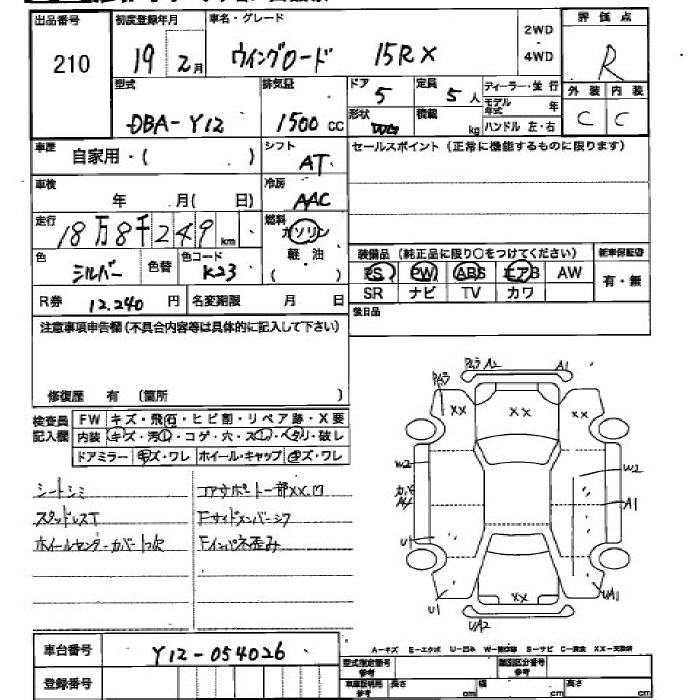 出品番号 初度登録年月 車名・グレード 2WD 評価点
210 19 2月 ウイングロード 15RX 4WD R
型式 排気量 ドア 定員 ディーラー・並行 外装 内装
DBA-Y12 1500 cc 5 5 人 モデル年式 年 C C
形状 積載 kg ハンドル 左・右
車歴 自家用・( ) シフト AT セールスポイント (正常に機能するものに限ります)
車検 年 月( 日) 冷房 AAC
走行 18万8千249 km 燃料 ガソリン
軽油
( )
色 シルバー 色替 色コード K23
装備品 (純正品に限り○をつけてください) 新車保証書
PS PW ABS エアB AW 有・無
SR ナビ TV カワ
R券 12.240 円 名変期限 月 日
後日品
注意事項申告欄(不具合内容等は具体的に記入して下さい)
修復歴 有 〔箇所 〕
検査員記入欄 FW キズ・飛石・ヒビ割・リペア跡・X要
内装 キズ・汚レ・コゲ・穴・スレ・ヘタリ・破レ
ドアミラー キズ・ワレ ホイール・キャップ キズ・ワレ
シートシミ コアサポート一部XX.
スタッドレスT Fサイドメンバー
ホイールセンターカバー1欠 Fインパネ歪み
A2 A1
XX XX XX
W2 W2
A4 A1
U1
XX
U1 UA1
UA2
A-キズ E-エクボ U-凹み S-サビ XX-交換済
車台番号 Y12-054026
登録番号
型式指定番号 参考 類別区分番号 参考
車庫証明用 参考 長さ cm 幅 cm 高さ cm